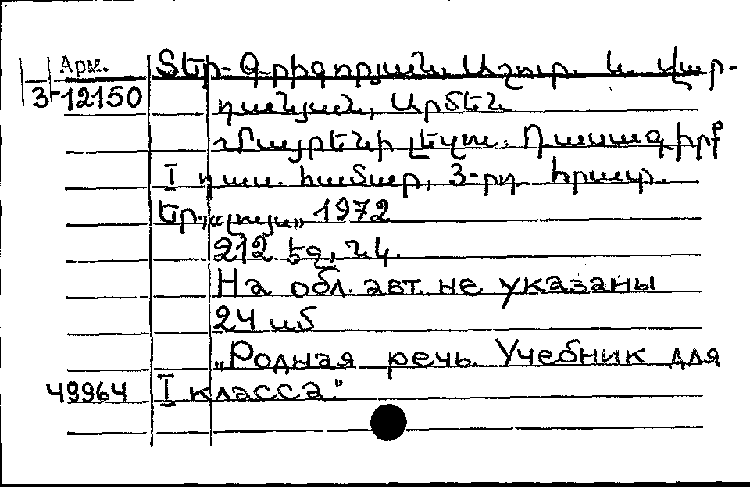 Арм. Տեր-Գրիգորյան, Աշուր. և Վար-
3-12150 դանյան, Արմեն
Մայրենի լեզու. Դասագիրք
I դաս. համար, 3-րդ հրատ.
Եր., „Լույս„ 1972
212 էջ, նկ.
На обл. авт. не указаны
24 սմ
„Родная речь. Учебник для
49964 I класса."